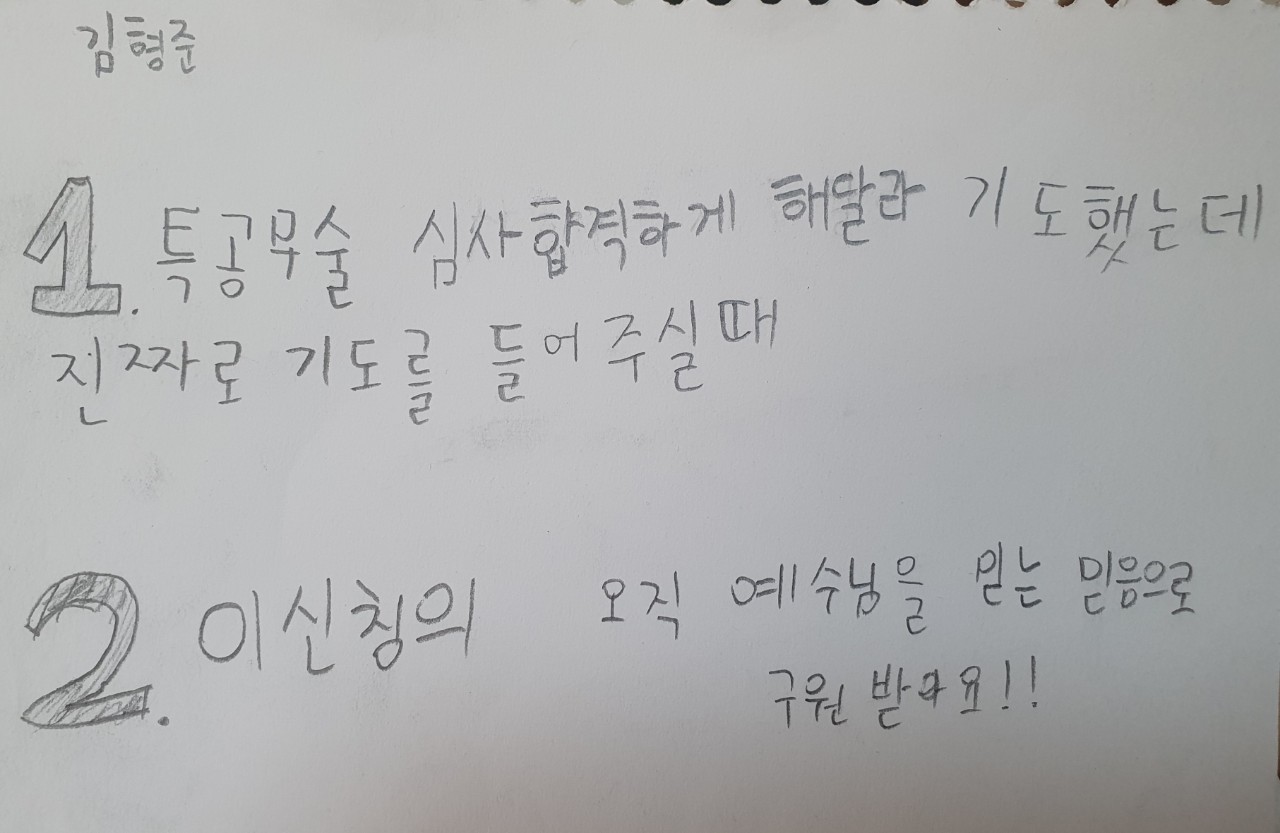 김형준
1. 특공무술 심사합격하게 해달라 기도했는데
진짜로 기도를 들어주실때
2. 이신칭의 오직 예수님을 믿는 믿음으로
구원 받아요!!